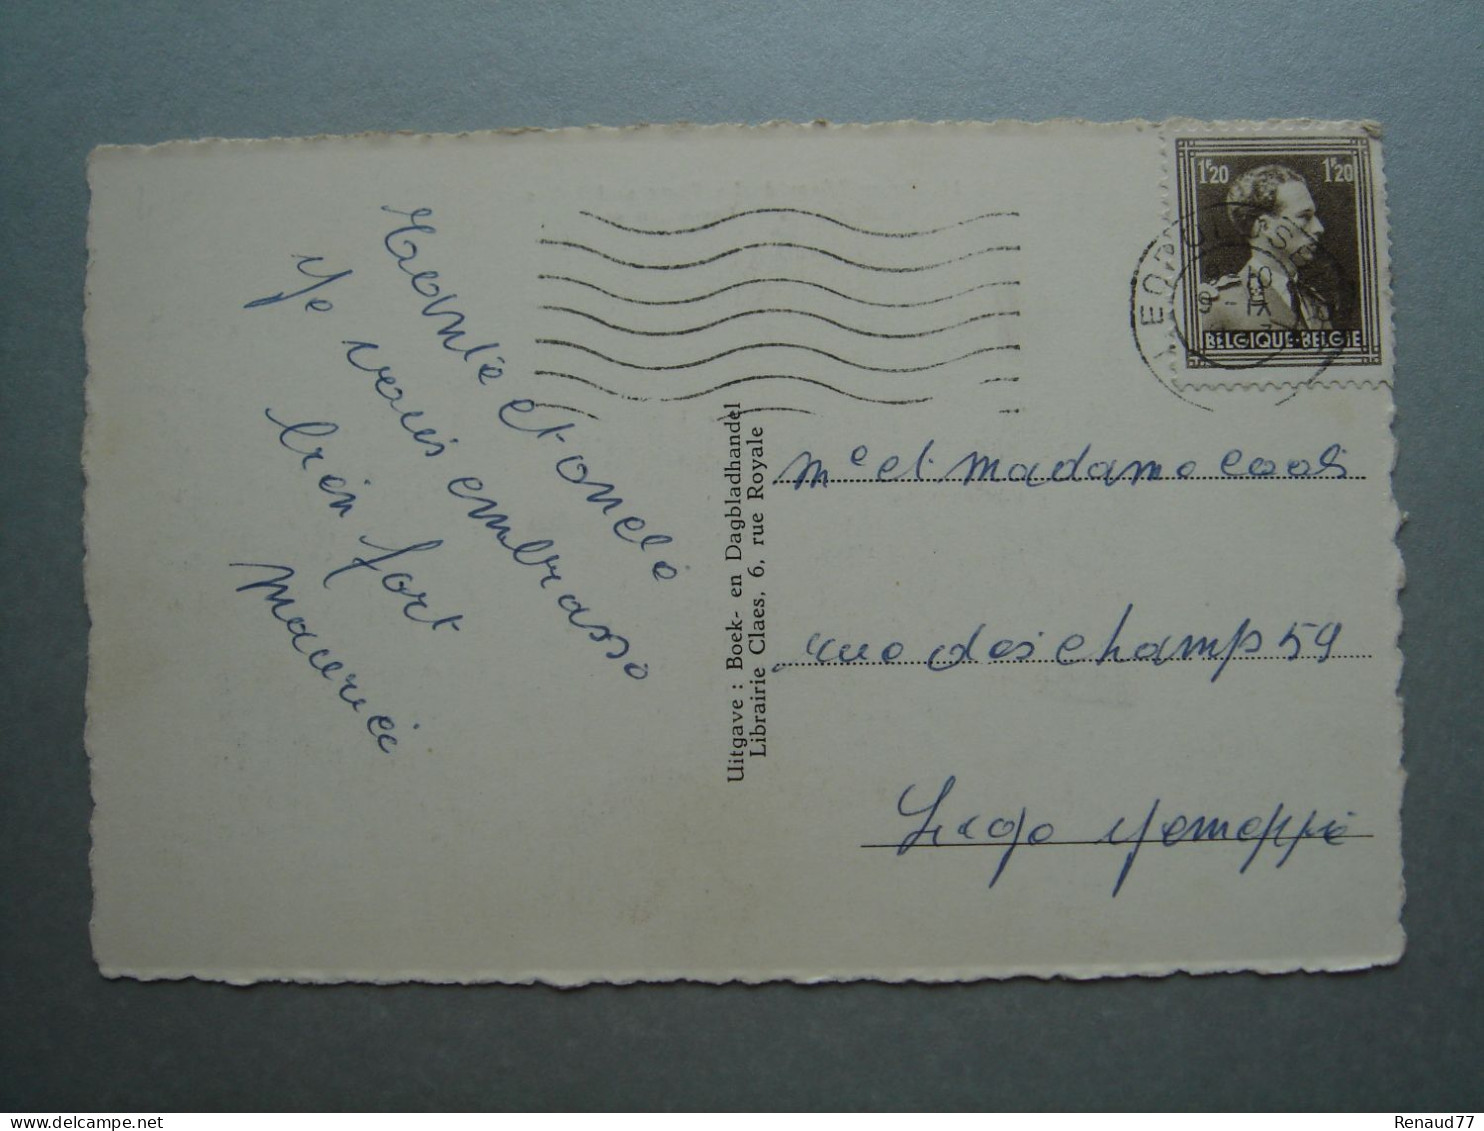 Tante et oncle
Je vous embrasse
bien fort
Maurice
Uitgave : Boek- en Dagbladhandel
Librairie Claes, 6, rue Royale
1F20 1F20
BELGIQUE·BELGIE
LEOPOLDSBURG
10
9 - IX
Mr et Madame cools
rue des champs 59
Liege Jemeppe
Renaud77